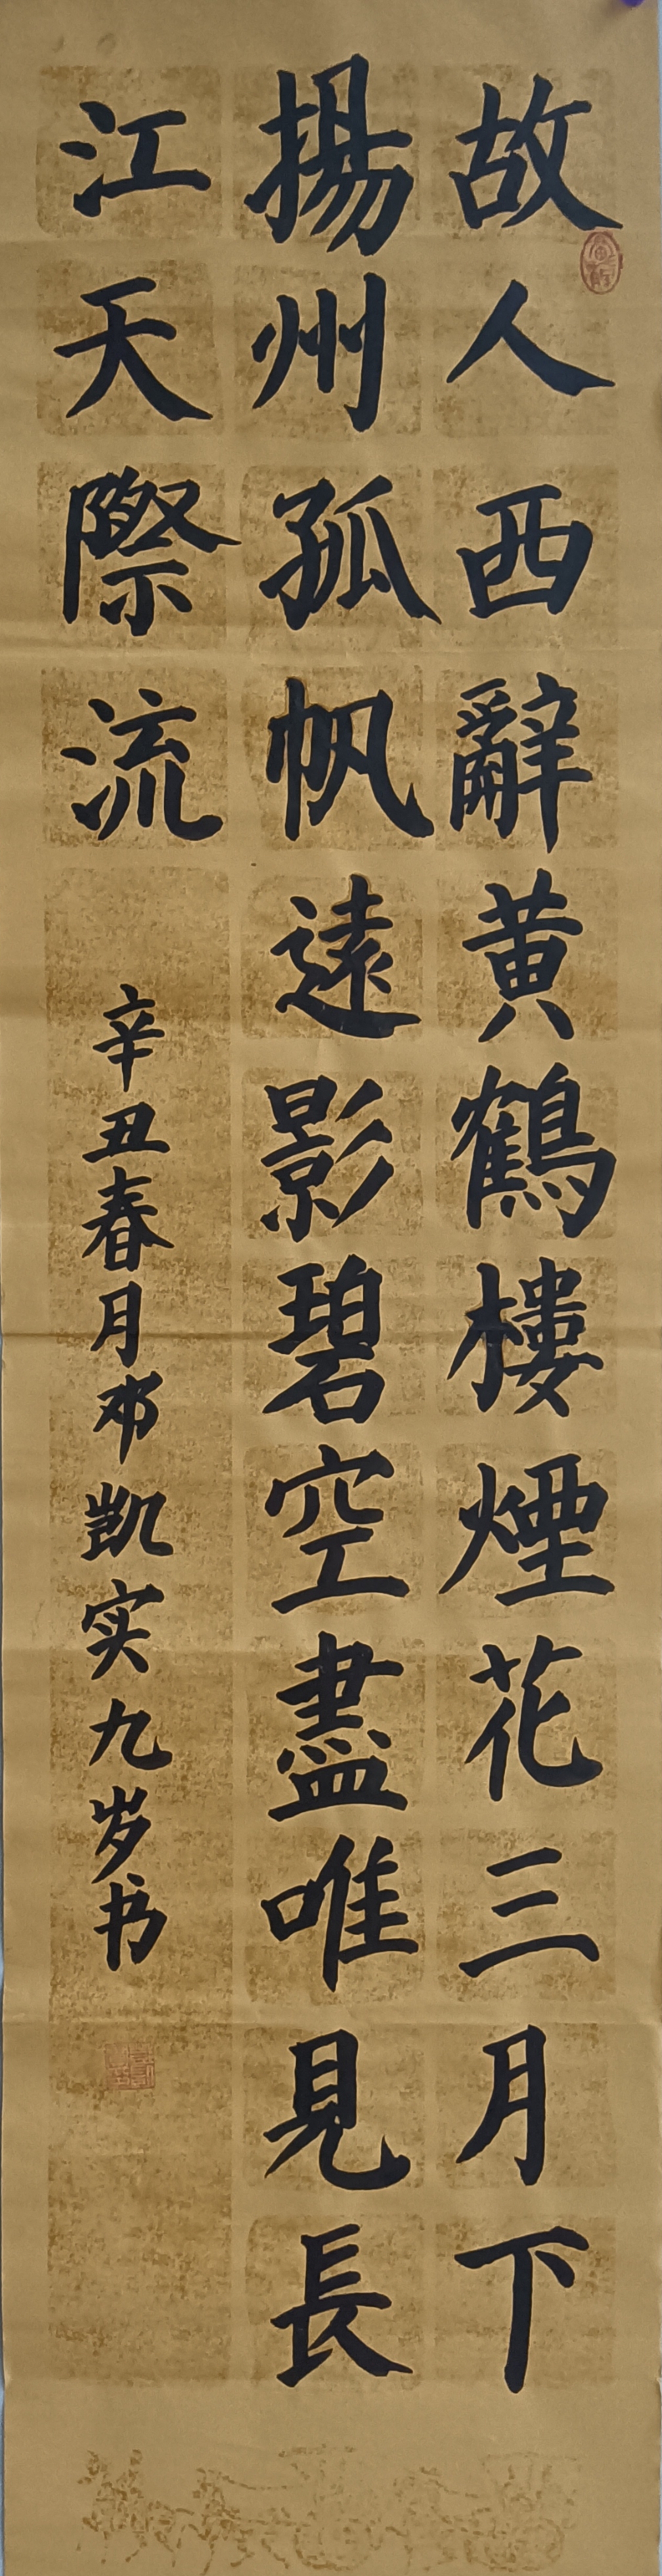 故人西辭黄鶴樓煙花三月下
揚州孤帆遠影碧空盡唯見長
江天際流
辛丑春月邓凯实九岁书